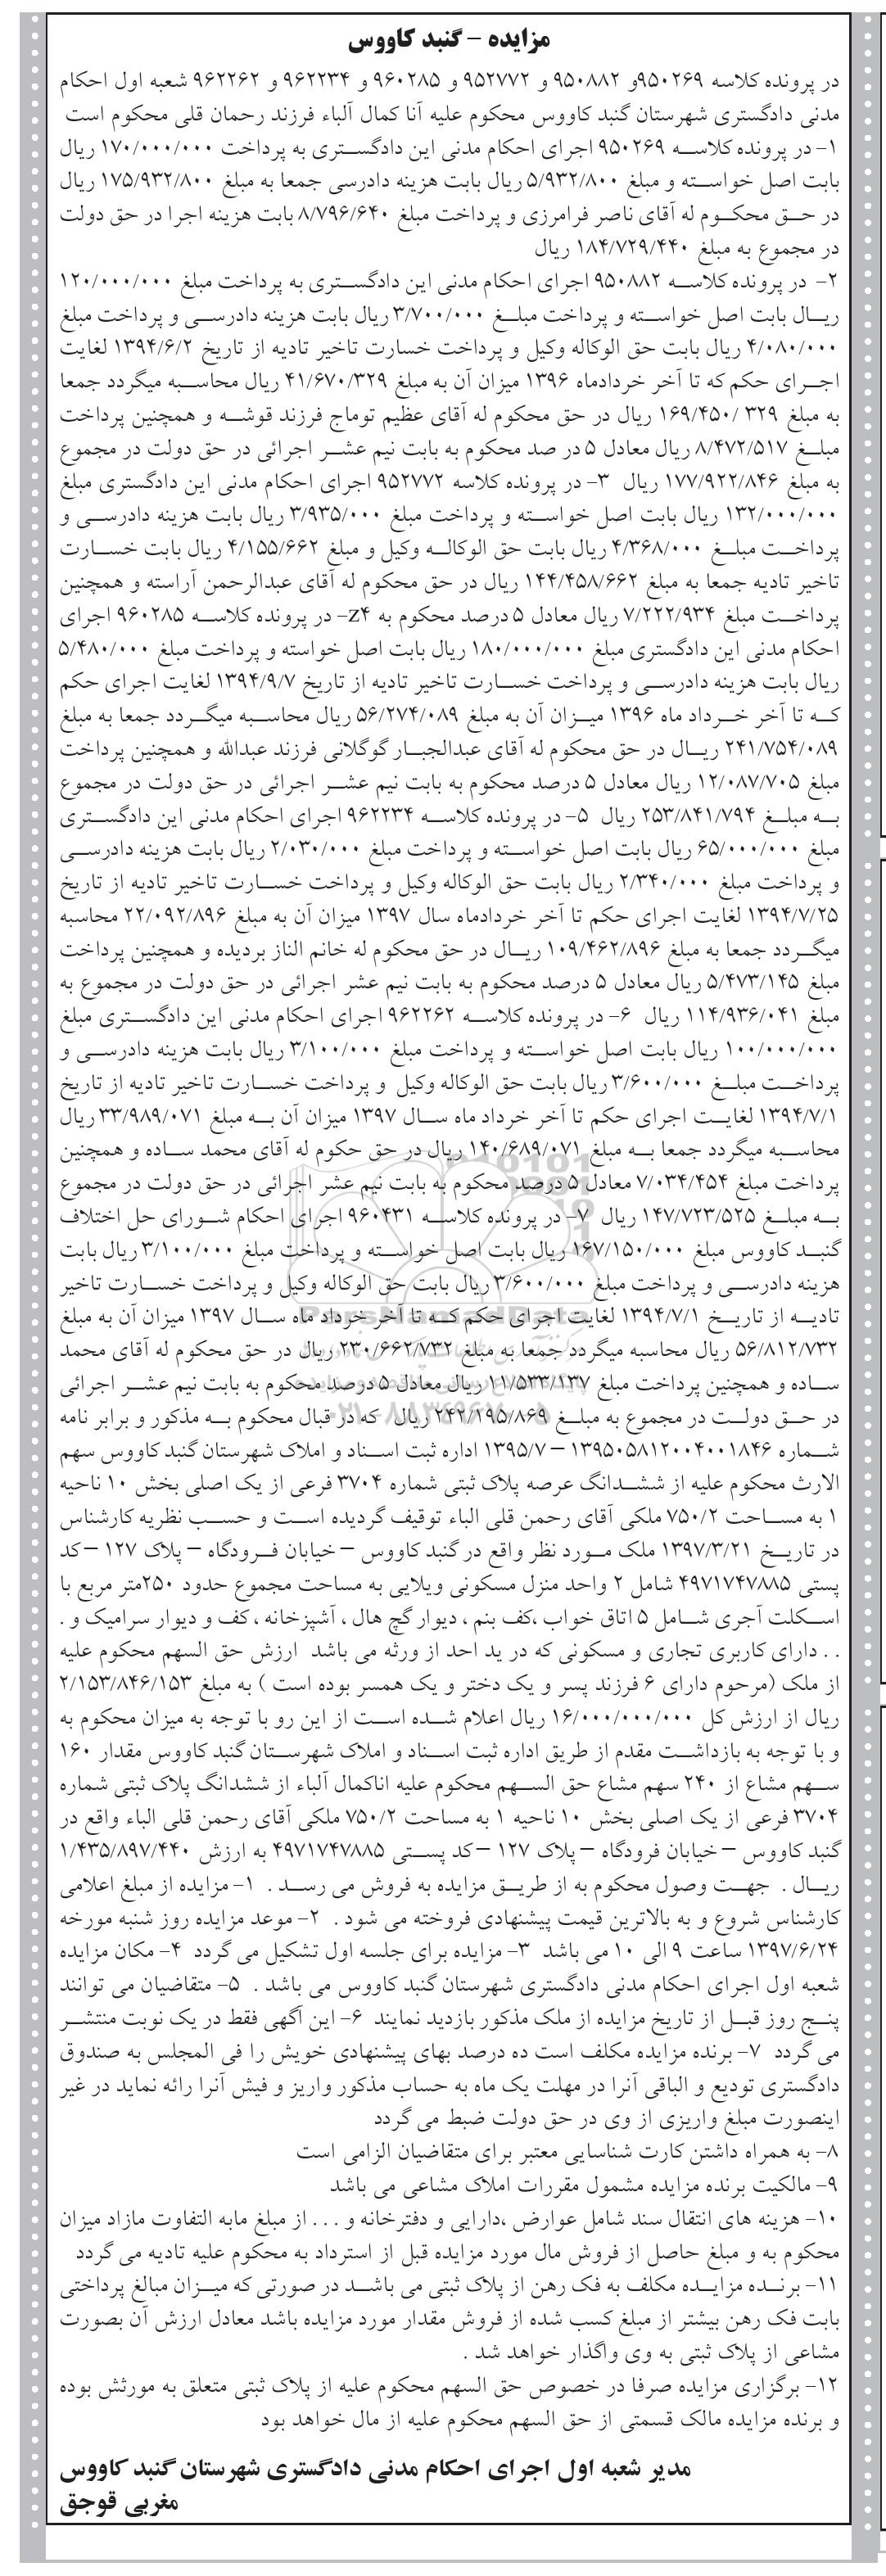 مزایده – گنبد کاووس
در پرونده کلاسه ۹۵۰۲۶۹و ۹۵۰۸۸۲ و ۹۵۲۷۷۲ و ۹۶۰۲۸۵ و ۹۶۲۲۳۴ و ۹۶۲۲۶۲ شعبه اول احکام
مدنی دادگستری شهرستان گنبد کاووس محکوم علیه آنا کمال آلباء فرزند رحمان قلی محکوم است
۱- در پرونده کلاسه ۹۵۰۲۶۹ اجرای احکام مدنی این دادگستری به پرداخت ۱۷۰/۰۰۰/۰۰۰ ریال
بابت اصل خواسته و مبلغ ۵/۹۳۲/۸۰۰ ریال بابت هزینه دادرسی جمعا به مبلغ ۱۷۵/۹۳۲/۸۰۰ ریال
در حق محکوم له آقای ناصر فرامرزی و پرداخت مبلغ ۸/۷۹۶/۶۴۰ بابت هزینه اجرا در حق دولت
در مجموع به مبلغ ۱۸۴/۷۲۹/۴۴۰ ریال
۲- در پرونده کلاسه ۹۵۰۸۸۲ اجرای احکام مدنی این دادگستری به پرداخت مبلغ ۱۲۰/۰۰۰/۰۰۰
ریال بابت اصل خواسته و پرداخت مبلغ ۳/۷۰۰/۰۰۰ ریال بابت هزینه دادرسی و پرداخت مبلغ
۴/۰۸۰/۰۰۰ ریال بابت حق الوکاله وکیل و پرداخت خسارت تاخیر تادیه از تاریخ ۱۳۹۴/۶/۲ لغایت
اجرای حکم که تا آخر خردادماه ۱۳۹۶ میزان آن به مبلغ ۴۱/۶۷۰/۳۲۹ ریال محاسبه میگردد جمعا
به مبلغ ۳۲۹ /۱۶۹/۴۵۰ ریال در حق محکوم له آقای عظیم توماج فرزند قوشه و همچنین پرداخت
مبلغ ۸/۴۷۲/۵۱۷ ریال معادل ۵ در صد محکوم به بابت نیم عشر اجرائی در حق دولت در مجموع
به مبلغ ۱۷۷/۹۲۲/۸۴۶ ریال ۳- در پرونده کلاسه ۹۵۲۷۷۲ اجرای احکام مدنی این دادگستری مبلغ
۱۳۲/۰۰۰/۰۰۰ ریال بابت اصل خواسته و پرداخت مبلغ ۳/۹۳۵/۰۰۰ ریال بابت هزینه دادرسی و
پرداخت مبلغ ۴/۳۶۸/۰۰۰ ریال بابت حق الوکاله وکیل و مبلغ ۴/۱۵۵/۶۶۲ ریال بابت خسارت
تاخیر تادیه جمعا به مبلغ ۱۴۴/۴۵۸/۶۶۲ ریال در حق محکوم له آقای عبدالرحمن آراسته و همچنین
پرداخت مبلغ ۷/۲۲۲/۹۳۴ ریال معادل ۵ درصد محکوم به z۴- در پرونده کلاسه ۹۶۰۲۸۵ اجرای
احکام مدنی این دادگستری مبلغ ۱۸۰/۰۰۰/۰۰۰ ریال بابت اصل خواسته و پرداخت مبلغ ۵/۴۸۰/۰۰۰
ریال بابت هزینه دادرسی و پرداخت خسارت تاخیر تادیه از تاریخ ۱۳۹۴/۹/۷ لغایت اجرای حکم
که تا آخر خرداد ماه ۱۳۹۶ میزان آن به مبلغ ۵۶/۲۷۴/۰۸۹ ریال محاسبه میگردد جمعا به مبلغ
۲۴۱/۷۵۴/۰۸۹ ریال در حق محکوم له آقای عبدالجبار گوگلانی فرزند عبدالله و همچنین پرداخت
مبلغ ۱۲/۰۸۷/۷۰۵ ریال معادل ۵ درصد محکوم به بابت نیم عشر اجرائی در حق دولت در مجموع
به مبلغ ۲۵۳/۸۴۱/۷۹۴ ریال ۵- در پرونده کلاسه ۹۶۲۲۳۴ اجرای احکام مدنی این دادگستری
مبلغ ۶۵/۰۰۰/۰۰۰ ریال بابت اصل خواسته و پرداخت مبلغ ۲/۰۳۰/۰۰۰ ریال بابت هزینه دادرسی
و پرداخت مبلغ ۲/۳۴۰/۰۰۰ ریال بابت حق الوکاله وکیل و پرداخت خسارت تاخیر تادیه از تاریخ
۱۳۹۴/۷/۲۵ لغایت اجرای حکم تا آخر خردادماه سال ۱۳۹۷ میزان آن به مبلغ ۲۲/۰۹۲/۸۹۶ محاسبه
میگردد جمعا به مبلغ ۱۰۹/۴۶۲/۸۹۶ ریال در حق محکوم له خانم الناز بردیده و همچنین پرداخت
مبلغ ۵/۴۷۳/۱۴۵ ریال معادل ۵ درصد محکوم به بابت نیم عشر اجرائی در حق دولت در مجموع به
مبلغ ۱۱۴/۹۳۶/۰۴۱ ریال ۶- در پرونده کلاسه ۹۶۲۲۶۲ اجرای احکام مدنی این دادگستری مبلغ
۱۰۰/۰۰۰/۰۰۰ ریال بابت اصل خواسته و پرداخت مبلغ ۳/۱۰۰/۰۰۰ ریال بابت هزینه دادرسی و
پرداخت مبلغ ۳/۶۰۰/۰۰۰ ریال بابت حق الوکاله وکیل و پرداخت خسارت تاخیر تادیه از تاریخ
۱۳۹۴/۷/۱ لغایت اجرای حکم تا آخر خرداد ماه سال ۱۳۹۷ میزان آن به مبلغ ۳۳/۹۸۹/۰۷۱ ریال
محاسبه میگردد جمعا به مبلغ ۱۴۰/۶۸۹/۰۷۱ ریال در حق حکوم له آقای محمد ساده و همچنین
پرداخت مبلغ ۷/۰۳۴/۴۵۴ معادل ۵ درصد محکوم به بابت نیم عشر اجرائی در حق دولت در مجموع
به مبلغ ۱۴۷/۷۲۳/۵۲۵ ریال ۷- در پرونده کلاسه ۹۶۰۴۳۱ اجرای احکام شورای حل اختلاف
گنبد کاووس مبلغ ۱۶۷/۱۵۰/۰۰۰ ریال بابت اصل خواسته و پرداخت مبلغ ۳/۱۰۰/۰۰۰ ریال بابت
هزینه دادرسی و پرداخت مبلغ ۳/۶۰۰/۰۰۰ ریال بابت حق الوکاله وکیل و پرداخت خسارت تاخیر
تادیه از تاریخ ۱۳۹۴/۷/۱ لغایت اجرای حکم که تا آخر خرداد ماه سال ۱۳۹۷ میزان آن به مبلغ
۵۶/۸۱۲/۷۳۲ ریال محاسبه میگردد جمعا به مبلغ ۲۳۰/۶۶۲/۷۳۲ ریال در حق محکوم له آقای محمد
ساده و همچنین پرداخت مبلغ ۱۱/۵۳۳/۱۳۷ ریال معادل ۵ درصد محکوم به بابت نیم عشر اجرائی
در حق دولت در مجموع به مبلغ ۲۴۲/۱۹۵/۸۶۹ ریال که در قبال محکوم به مذکور و برابر نامه
شماره ۱۳۹۵۰۵۸۱۲۰۰۴۰۰۱۸۴۶ – ۱۳۹۵/۷ اداره ثبت اسناد و املاک شهرستان گنبد کاووس سهم
الارث محکوم علیه از ششدانگ عرصه پلاک ثبتی شماره ۳۷۰۴ فرعی از یک اصلی بخش ۱۰ ناحیه
۱ به مساحت ۷۵۰/۲ ملکی آقای رحمن قلی الباء توقیف گردیده است و حسب نظریه کارشناس
در تاریخ ۱۳۹۷/۳/۲۱ ملک مورد نظر واقع در گنبد کاووس – خیابان فرودگاه – پلاک ۱۲۷ – کد
پستی ۴۹۷۱۷۴۷۸۸۵ شامل ۲ واحد منزل مسکونی ویلایی به مساحت مجموع حدود ۲۵۰متر مربع با
اسکلت آجری شامل ۵ اتاق خواب ،کف بنم ، دیوار گچ هال ، آشپزخانه ، کف و دیوار سرامیک و .
. . دارای کاربری تجاری و مسکونی که در ید احد از ورثه می باشد ارزش حق السهم محکوم علیه
از ملک (مرحوم دارای ۶ فرزند پسر و یک دختر و یک همسر بوده است ) به مبلغ ۲/۱۵۳/۸۴۶/۱۵۳
ریال از ارزش کل ۱۶/۰۰۰/۰۰۰/۰۰۰ ریال اعلام شده است از این رو با توجه به میزان محکوم به
و با توجه به بازداشت مقدم از طریق اداره ثبت اسناد و املاک شهرستان گنبد کاووس مقدار ۱۶۰
سهم مشاع از ۲۴۰ سهم مشاع حق السهم محکوم علیه اناکمال آلباء از ششدانگ پلاک ثبتی شماره
۳۷۰۴ فرعی از یک اصلی بخش ۱۰ ناحیه ۱ به مساحت ۷۵۰/۲ ملکی آقای رحمن قلی الباء واقع در
گنبد کاووس – خیابان فرودگاه – پلاک ۱۲۷ – کد پستی ۴۹۷۱۷۴۷۸۸۵ به ارزش ۱/۴۳۵/۸۹۷/۴۴۰
ریال . جهت وصول محکوم به از طریق مزایده به فروش می رسد . ۱- مزایده از مبلغ اعلامی
کارشناس شروع و به بالاترین قیمت پیشنهادی فروخته می شود . ۲- موعد مزایده روز شنبه مورخه
۱۳۹۷/۶/۲۴ ساعت ۹ الی ۱۰ می باشد ۳- مزایده برای جلسه اول تشکیل می گردد ۴- مکان مزایده
شعبه اول اجرای احکام مدنی دادگستری شهرستان گنبد کاووس می باشد . ۵- متقاضیان می توانند
پنج روز قبل از تاریخ مزایده از ملک مذکور بازدید نمایند ۶- این آگهی فقط در یک نوبت منتشر
می گردد ۷- برنده مزایده مکلف است ده درصد بهای پیشنهادی خویش را فی المجلس به صندوق
دادگستری تودیع و الباقی آنرا در مهلت یک ماه به حساب مذکور واریز و فیش آنرا رائه نماید در غیر
اینصورت مبلغ واریزی از وی در حق دولت ضبط می گردد
۸- به همراه داشتن کارت شناسایی معتبر برای متقاضیان الزامی است
۹- مالکیت برنده مزایده مشمول مقررات املاک مشاعی می باشد
۱۰- هزینه های انتقال سند شامل عوارض ،دارایی و دفترخانه و . . . از مبلغ مابه التفاوت مازاد میزان
محکوم به و مبلغ حاصل از فروش مال مورد مزایده قبل از استرداد به محکوم علیه تادیه می گردد
۱۱- برنده مزایده مکلف به فک رهن از پلاک ثبتی می باشد در صورتی که میزان مبالغ پرداختی
بابت فک رهن بیشتر از مبلغ کسب شده از فروش مقدار مورد مزایده باشد معادل ارزش آن بصورت
مشاعی از پلاک ثبتی به وی واگذار خواهد شد .
۱۲- برگزاری مزایده صرفا در خصوص حق السهم محکوم علیه از پلاک ثبتی متعلق به مورثش بوده
و برنده مزایده مالک قسمتی از حق السهم محکوم علیه از مال خواهد بود
مدیر شعبه اول اجرای احکام مدنی دادگستری شهرستان گنبد کاووس
مغربی قوجق